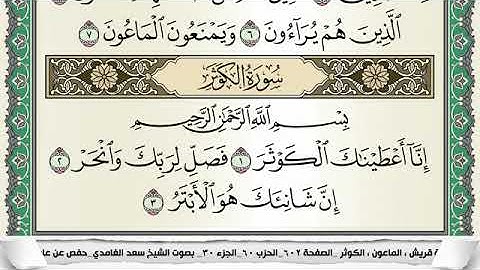 ٱلَّذِينَ هُمۡ يُرَآءُونَ ٦ وَيَمۡنَعُونَ ٱلۡمَاعُونَ ٧
سُورَةُ الكَوۡثَرِ
بِسۡمِ ٱللَّهِ ٱلرَّحۡمَٰنِ ٱلرَّحِيمِ
إِنَّآ أَعۡطَيۡنَٰكَ ٱلۡكَوۡثَرَ ١ فَصَلِّ لِرَبِّكَ وَٱنۡحَرۡ ٢
إِنَّ شَانِئَكَ هُوَ ٱلۡأَبۡتَرُ ٣
قريش ، الماعون ، الكوثر _ الصفحة ٦٠٢_ الحزب ٦٠_ الجزء ٣٠_ بصوت الشيخ سعد الغامدي_ حفص عن